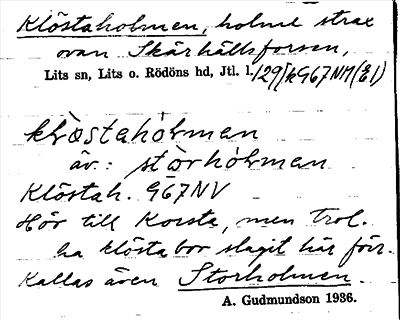 Klöstaholmen, holme strax
ovan Skärhällsforsen,
Lits sn, Lits o. Rödöns hd, Jtl. l.
klòstahòlman
äv.: stòrhòlman
Klöstah. 967NV
Hör till Korsta, men trol.
ha klösta bor slagit här förr.
Kallas även Storholmen.
A. Gudmundson 1936.